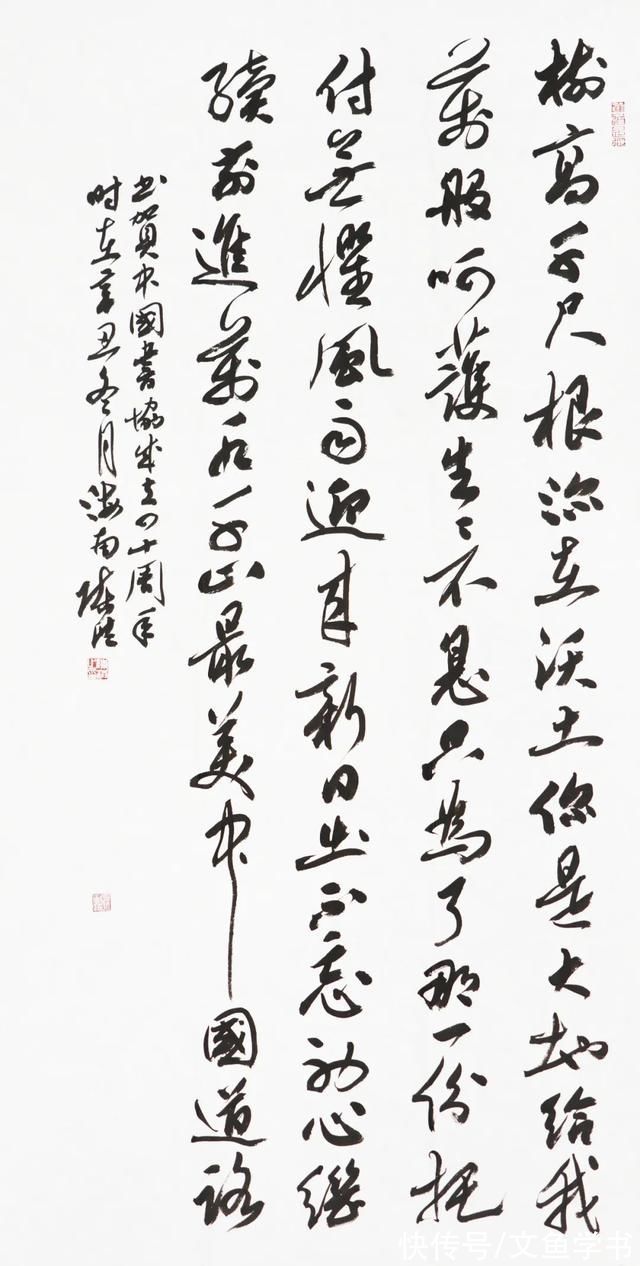 樹高千尺根深在沃土你是大地給我
萬般呵護生生不息只為了那一份托
付無懼風雨迎來新日出不忘初心繼
續前進萬水千山最美中國道路
书賀中國書協成立四十周年
时在辛丑冬月海南陳
快传号/文鱼学书